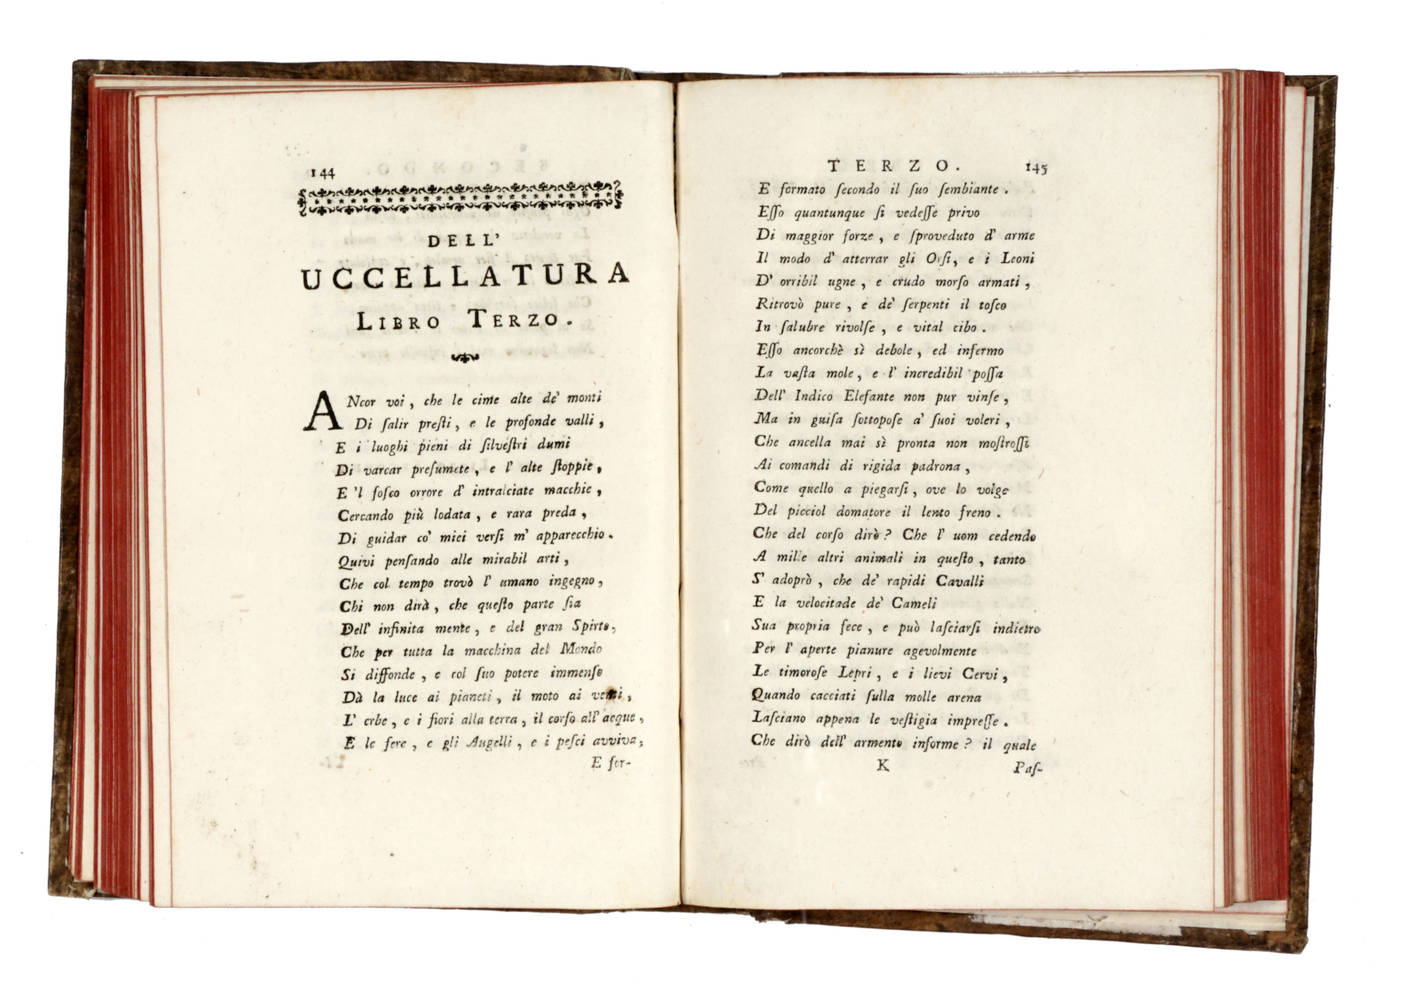 144
DELL'
UCCELLATURA
LIBRO TERZO.
ANcor voi, che le cime alte de' monti
Di ſalir preſti, e le profonde valli,
E i luoghi pieni di ſilveſtri dumi
Di varcar preſumete, e l' alte ſtoppie,
E 'l foſco orrore d' intralciate macchie,
Cercando più lodata, e rara preda,
Di guidar co' miei verſi m' apparecchio.
Quivi penſando alle mirabil arti,
Che col tempo trovò l' umano ingegno,
Chi non dirà, che queſto parte ſia
Dell' infinita mente, e del gran Spirto,
Che per tutta la macchina del Mondo
Si diffonde, e col ſuo potere immenſo
Dà la luce ai pianeti, il moto ai venti,
L' erbe, e i fiori alla terra, il corſo all' acque,
E le fere, e gli Augelli, e i peſci avviva,
E for-
TERZO. 145
E formato ſecondo il ſuo ſembiante.
Eſſo quantunque ſi vedeſſe privo
Di maggior forze, e ſproveduto d' arme
Il modo d' atterrar gli Orſi, e i Leoni
D' orribil ugne, e crudo morſo armati,
Ritrovò pure, e de' ſerpenti il toſco
In ſalubre rivolſe, e vital cibo.
Eſſo ancorchè sì debole, ed infermo
La vaſta mole, e l' incredibil poſſa
Dell' Indico Elefante non pur vinſe,
Ma in guiſa ſottopoſe a' ſuoi voleri,
Che ancella mai sì pronta non moſtroſſi
Ai comandi di rigida padrona,
Come quello a piegarſi, ove lo volge
Del picciol domatore il lento freno.
Che del corſo dirò? Che l' uom cedendo
A mille altri animali in queſto, tanto
S' adoprò, che de' rapidi Cavalli
E la velocitade de' Cameli
Sua propria fece, e può laſciarſi indietro
Per l' aperte pianure agevolmente
Le timoroſe Lepri, e i lievi Cervi,
Quando cacciati ſulla molle arena
Laſciano appena le veſtigia impreſſe.
Che dirò dell' armento informe? il quale
K Paſ-